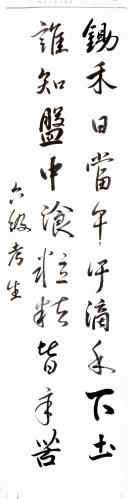 鋤禾日當午汗滴禾下土
誰知盤中湌粒粒皆辛苦
六级考生